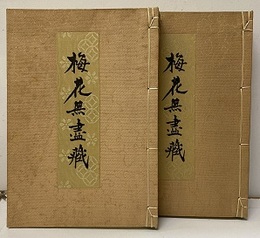 梅花無盡藏
梅花無盡藏